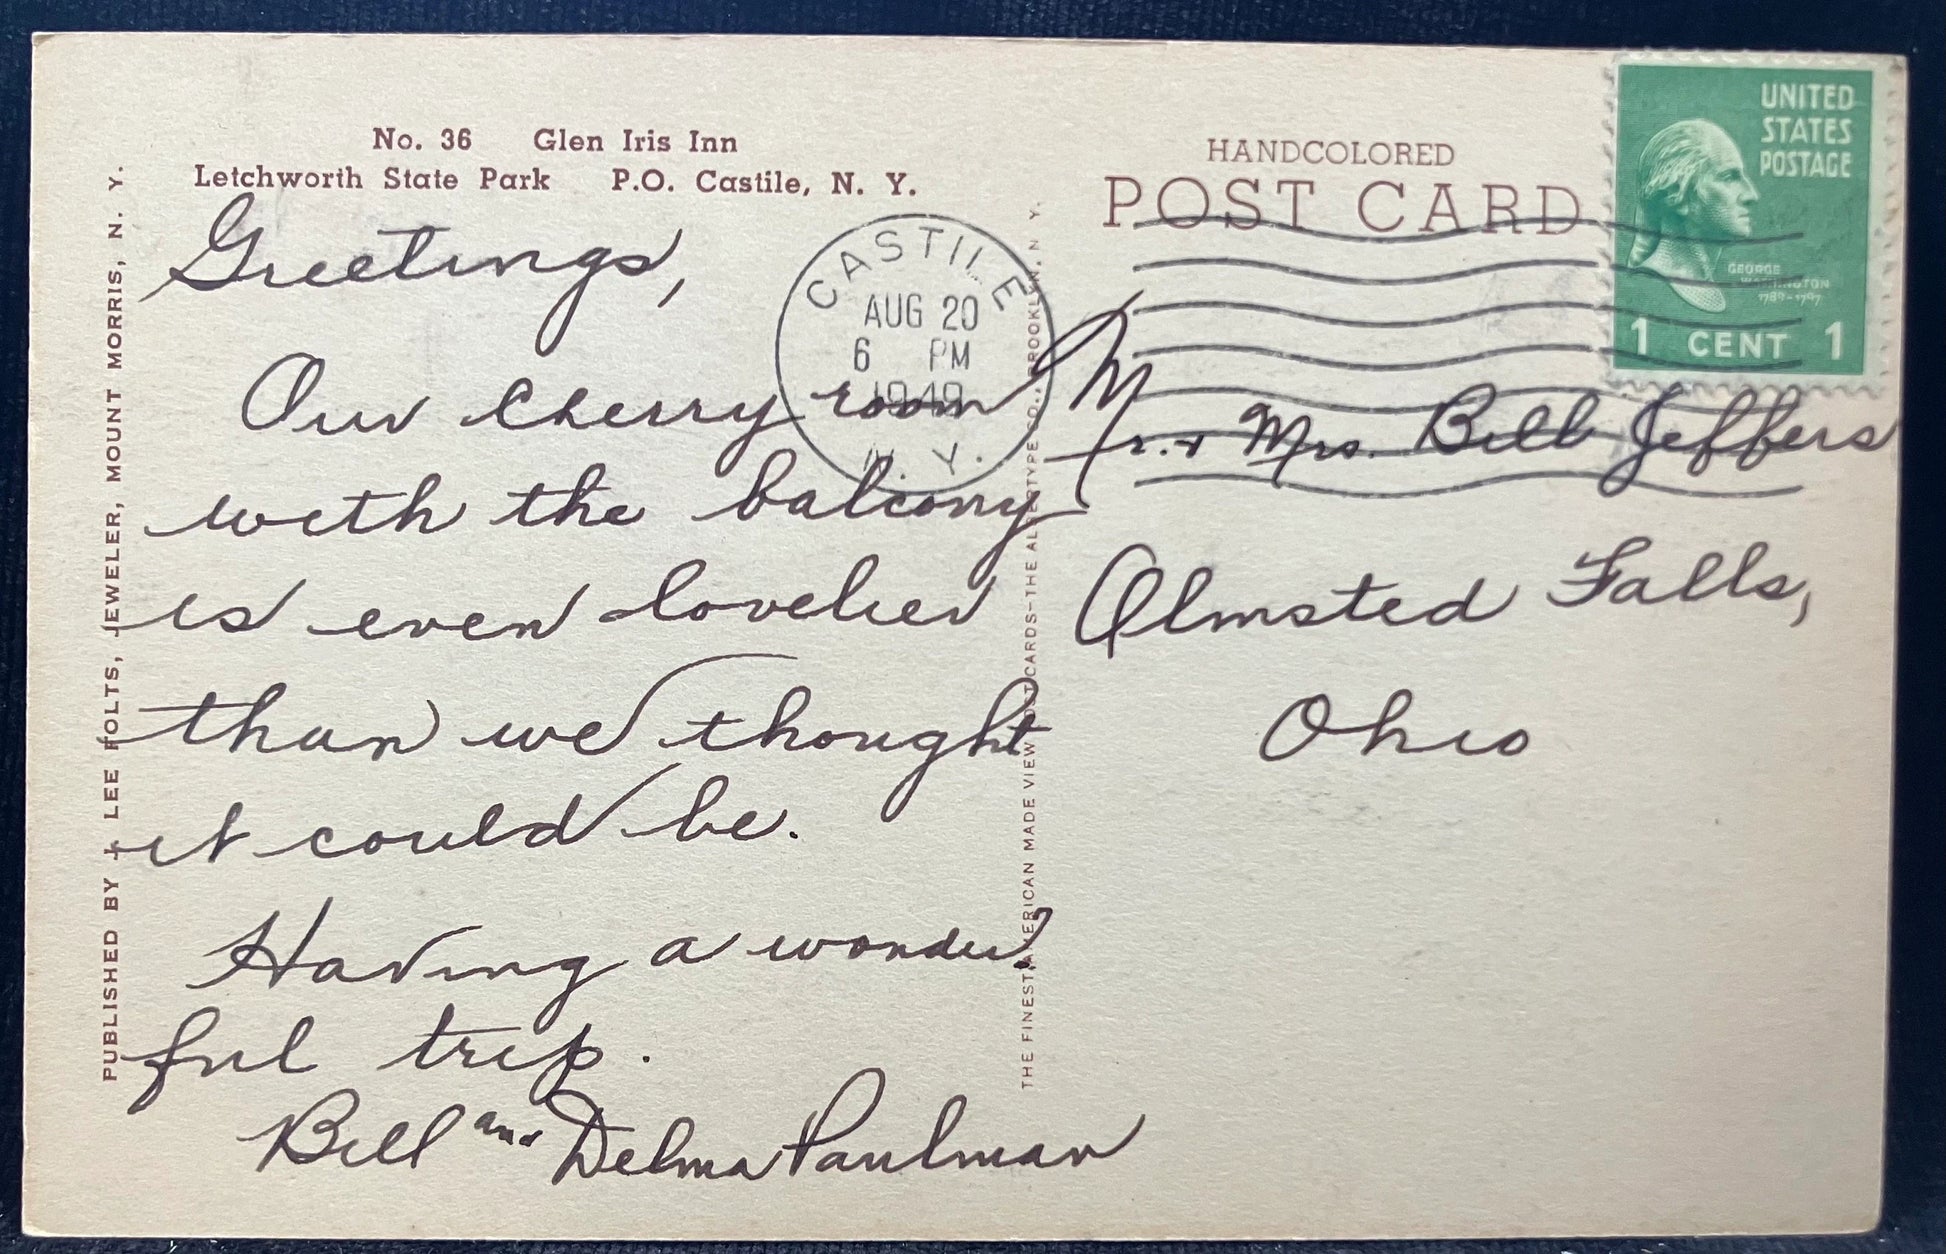 No. 36 Glen Iris Inn
Letchworth State Park P.O. Castile, N. Y.
Greetings,
Our cherry room
with the balcony
is even lovelier
than we thought
it could be.
Having a wonder-
ful trip.
Bill and Delma Paulman
PUBLISHED BY LEE FOLTS, JEWELER, MOUNT MORRIS, N. Y.
THE FINEST AMERICAN MADE VIEW POST CARDS—THE ALBERTYPE CO., BROOKLYN, N. Y.
CASTILE
AUG 20
6 PM
1949
N. Y.
HANDCOLORED
POST CARD
UNITED
STATES
POSTAGE
GEORGE
WASHINGTON
1789-1797
1 CENT 1
Mr. + Mrs. Bill Jeffers
Olmsted Falls,
Ohio